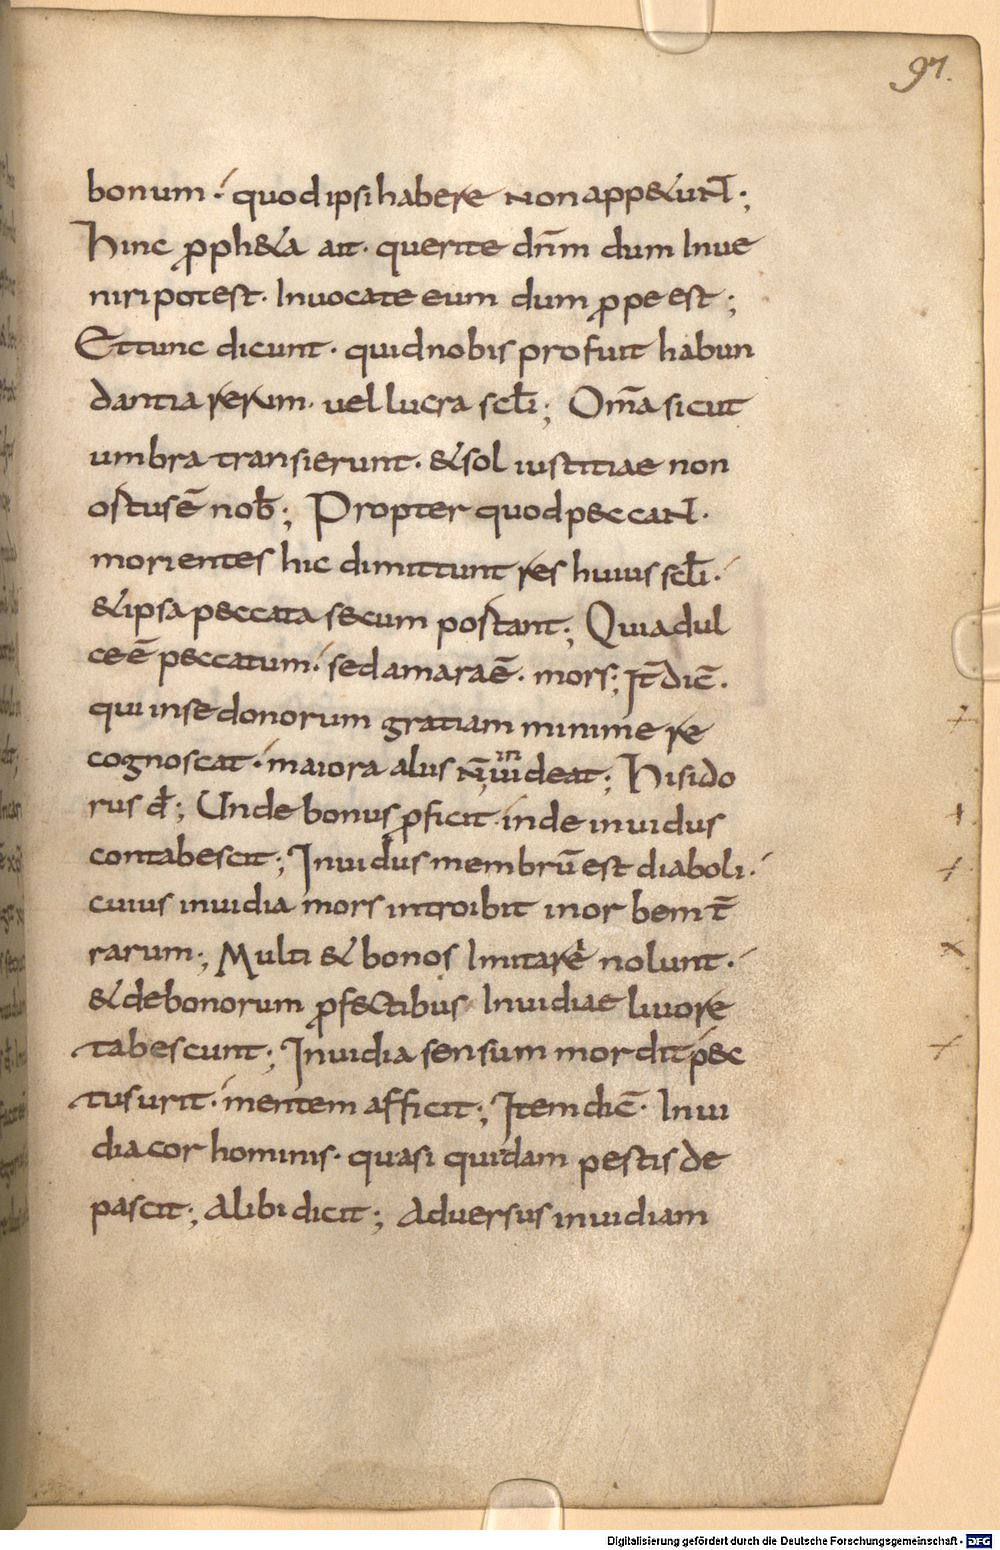 97.
bonum · quod ipsi habere non app&unt;
Hinc ꝓph&a ait · querite dn̄m dum Inue
niri potest · Invocate eum dum ꝓpe est;
Et tunc dicunt · quid nobis profuit habun
dantia rerum · uel lucra scłi; Om̄a sicut
umbra transierunt · & sol iustitiae non
ostus ē nob̄; Propter quod peccant ·
morientes hic dimittunt res huius scłi ·
& ipsa peccata secum postant; Quia dul
ce ē peccatum · sed amara ē · mors; It̄ dic̄ ·
qui in se donorum gratiam minime re
cognoscat · maiora alus n̄ inuideat; Hisido
rus d̄; Unde bonus ꝓficit · inde inuidus
contabescit; Inuidus membrū est diaboli ·
cuius inuidia mors introibit in orbem t̄
rarum; Multi & bonos Imitare nolunt ·
& de bonorum ꝓfectibus Inuidiae liuore
tabescunt; Inuidia sensum mordit pec
tus urit · mentem afficit; Item dic̄ · Inui
dia cor hominis · quasi quidam pestis de
pascit; Alibi dicit; Aduersus inuidiam
Digitalisierung gefördert durch die Deutsche Forschungsgemeinschaft - DFG